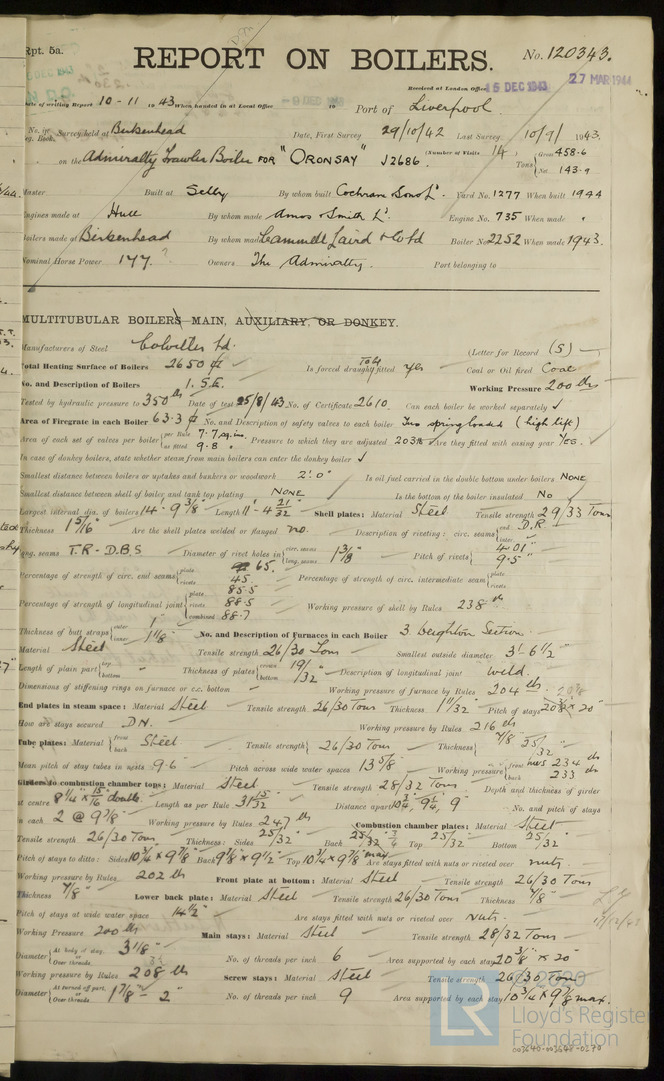 Rpt. 5a.
REPORT ON BOILERS.
No. 120343.
Received at London Office 15 DEC 1943
27 MAR 1944
Date of writing Report 10-11 1943 When handed in at Local Office 19 Port of Liverpool
No. in Reg. Book. Survey held at Birkenhead Date, First Survey 29/10/42 Last Survey 10/9/ 1943
on the Admiralty Trawler Boiler FOR "ORONSAY" J2686. (Number of Visits 14) Tons Gross 458.6 Net 143.9
Master Built at Selby By whom built Cochran Sons Ld. Yard No. 1277 When built 1944
Engines made at Hull By whom made Amos & Smith Ld. Engine No. 735 When made "
Boilers made at Birkenhead By whom made Cammell Laird & Co Ld Boiler No. 2252 When made 1943.
Nominal Horse Power 177. ? Owners The Admiralty. Port belonging to
MULTITUBULAR BOILERS MAIN, AUXILIARY, OR DONKEY.
Manufacturers of Steel Colvilles Ld. (Letter for Record (S)
Total Heating Surface of Boilers 2650 Is forced draught fitted yes Coal or Oil fired Coal
No. and Description of Boilers 1. S.E. Working Pressure 200 lbs
Tested by hydraulic pressure to 350 lbs Date of test 25/8/43 No. of Certificate 2610. Can each boiler be worked separately ✓
Area of Firegrate in each Boiler 63.3 No. and Description of safety valves to each boiler Two spring loaded (high lift)
Area of each set of valves per boiler per Rule 7.7 sq. ins. as fitted 9.8 Pressure to which they are adjusted 203 lb Are they fitted with easing gear YES. ✓
In case of donkey boilers, state whether steam from main boilers can enter the donkey boiler ✓
Smallest distance between boilers or uptakes and bunkers or woodwork 2'.0" Is oil fuel carried in the double bottom under boilers NONE
Smallest distance between shell of boiler and tank top plating NONE Is the bottom of the boiler insulated NO
Largest internal dia. of boilers 14'-9 3/8" Length 11'-4 21/32 Shell plates: Material Steel Tensile strength 29/33 Tons
Thickness 1 5/16" Are the shell plates welded or flanged no. Description of riveting: circ. seams end D.R. inter.
long. seams T.R. D.B.S Diameter of rivet holes in circ. seams long. seams 1 3/8" Pitch of rivets 4.01" 9.5"
Percentage of strength of circ. end seams plate 65. rivets 45 Percentage of strength of circ. intermediate seam plate rivets
Percentage of strength of longitudinal joint plate 85.5 rivets 88.5 combined 88.7 Working pressure of shell by Rules 238 lb
Thickness of butt straps outer 1" inner 1 1/8" No. and Description of Furnaces in each Boiler 3. Deighton Section.
Material Steel Tensile strength 26/30 Tons Smallest outside diameter 3'. 6 1/2"
Length of plain part top bottom Thickness of plates crown bottom 19/32" Description of longitudinal joint weld.
Dimensions of stiffening rings on furnace or c.c. bottom Working pressure of furnace by Rules 204 lbs
End plates in steam space: Material Steel Tensile strength 26/30 Tons Thickness 1 11/32 Pitch of stays 20 3/8 × 20"
How are stays secured D.N. Working pressure by Rules 216 lbs
Tube plates: Material front back Steel Tensile strength 26/30 Tons Thickness 7/8" 25/32"
Mean pitch of stay tubes in nests 9.6 Pitch across wide water spaces 13 5/8" Working pressure front 234 lbs back 233 lbs
Girders to combustion chamber tops: Material Steel Tensile strength 28/32 Tons Depth and thickness of girder
at centre 8 1/4" × 15/16" double. Length as per Rule 31 15/32 Distance apart 10 3/4, 9 1/4, 9" No. and pitch of stays
in each 2 @ 9 7/8" Working pressure by Rules 247 lb Combustion chamber plates: Material Steel
Tensile strength 26/30 Tons Thickness: Sides 25/32" Back 25/32 3/4 Top 25/32" Bottom 25/32"
Pitch of stays to ditto: Sides 10 3/4 × 9 7/8" Back 9 7/8 × 9 1/2" Top 10 3/4 × 9 7/8" max Are stays fitted with nuts or riveted over nuts.
Working pressure by Rules 202 lb Front plate at bottom: Material Steel Tensile strength 26/30 Tons
Thickness 7/8" Lower back plate: Material Steel Tensile strength 26/30 Tons Thickness 7/8"
Pitch of stays at wide water space 14 1/2" Are stays fitted with nuts or riveted over nuts.
Working Pressure 200 lb Main stays: Material Steel Tensile strength 28/32 Tons
Diameter At body of stay, or Over threads. 3 1/8" No. of threads per inch 6 Area supported by each stay 20 3/8" × 20"
Working pressure by Rules 208 lb Screw stays: Material Steel Tensile strength 26/30 Tons
Diameter At turned off part, or Over threads. 1 7/8 - 2" No. of threads per inch 9 Area supported by each stay 10 3/4 × 9 7/8 max.
LR
© 2020
Lloyd's Register
Foundation
003640-003648-0270